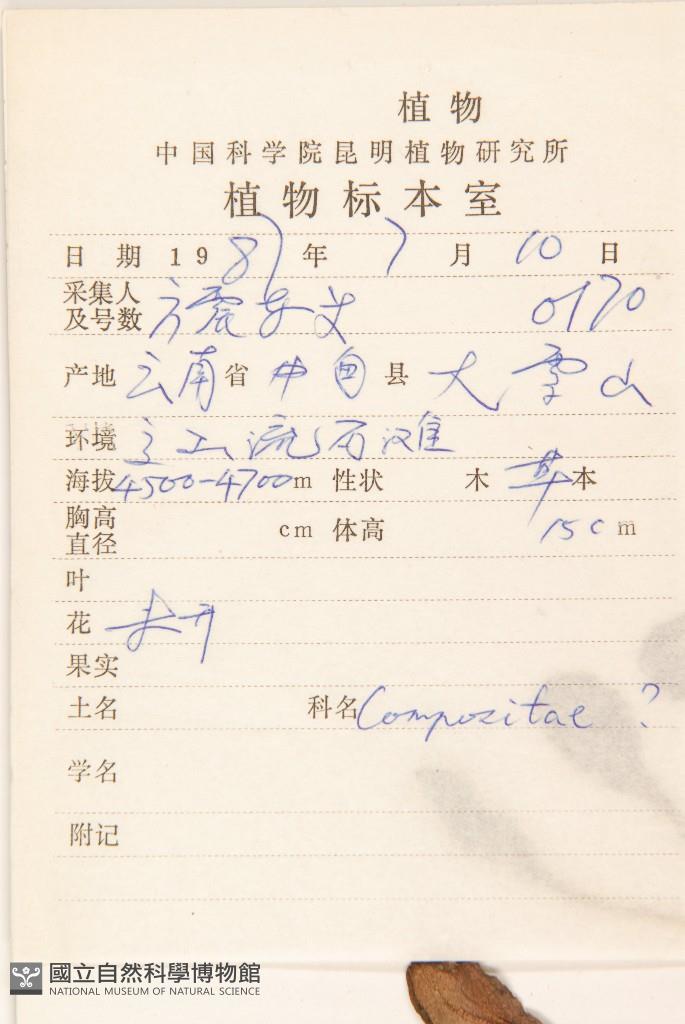 植物
中国科学院昆明植物研究所
植物标本室
日 期 1987年 7 月 10 日
采集人及号数 方震东 0170
产地 云南省 中甸县 大雪山
环境 流石滩
海拔 4500-4700m 性状 木 草本
胸高直径 cm 体高 15cm
叶
花 未开
果实
土名 科名 Compositae ?
学名
附记
國立自然科學博物館
NATIONAL MUSEUM OF NATURAL SCIENCE